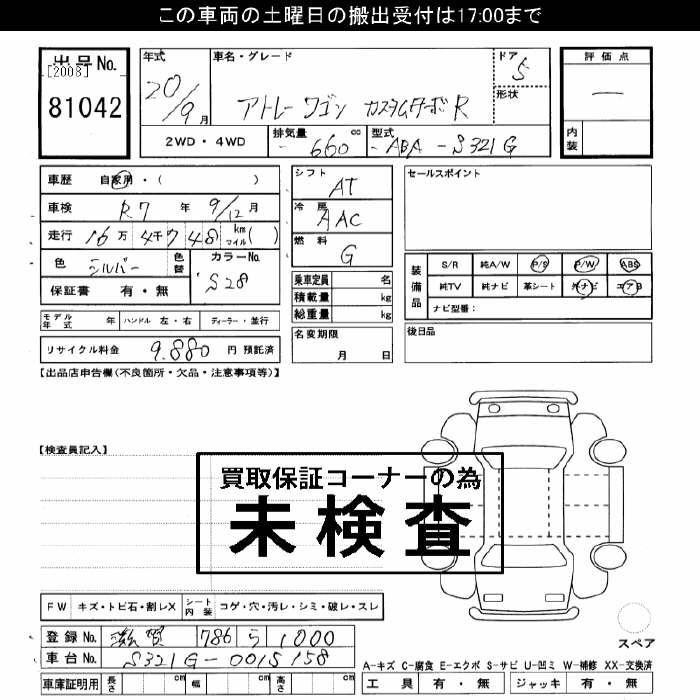 この車両の土曜日の搬出受付は17:00まで
出品No.
[2008]
81042
年式
20/9月
車名・グレード
アトレーワゴン カスタムターボR
ドア
5
形状
評価点
―
内装
2WD・4WD
排気量
660 cc
型式
ABA-S321G
車歴 自家用・( )
車検 R7年 9/12月
走行 16万 4千 748 km マイル( )
色 シルバー 色替
カラーNo.
S28
保証書 有・無
シフト AT
冷房 AAC
燃料 G
乗車定員 名
積載量 kg
総重量 kg
名変期限
月 日
セールスポイント
装備品
S/R 純A/W P/S P/W ABS
純TV 純ナビ 革シート 外ナビ エアB
ナビ型番:
後日品
モデル年式 年 ハンドル 左・右 ディーラー・並行
リサイクル料金 9,880 円 預託済
【出品店申告欄(不良箇所・欠品・注意事項等)】
【検査員記入】
買取保証コーナーの為
未検査
FW キズ・トビ石・割レX シート内装 コゲ・穴・汚レ・シミ・破レ・スレ
登録No. 滋賀 786 ら 1000
車台No. S321G-0015158
車庫証明用 長さ cm 幅 cm 高さ cm
スペア
A-キズ C-腐食 E-エクボ S-サビ U-凹ミ W-補修 XX-交換済
工具 有・無 ジャッキ 有・無